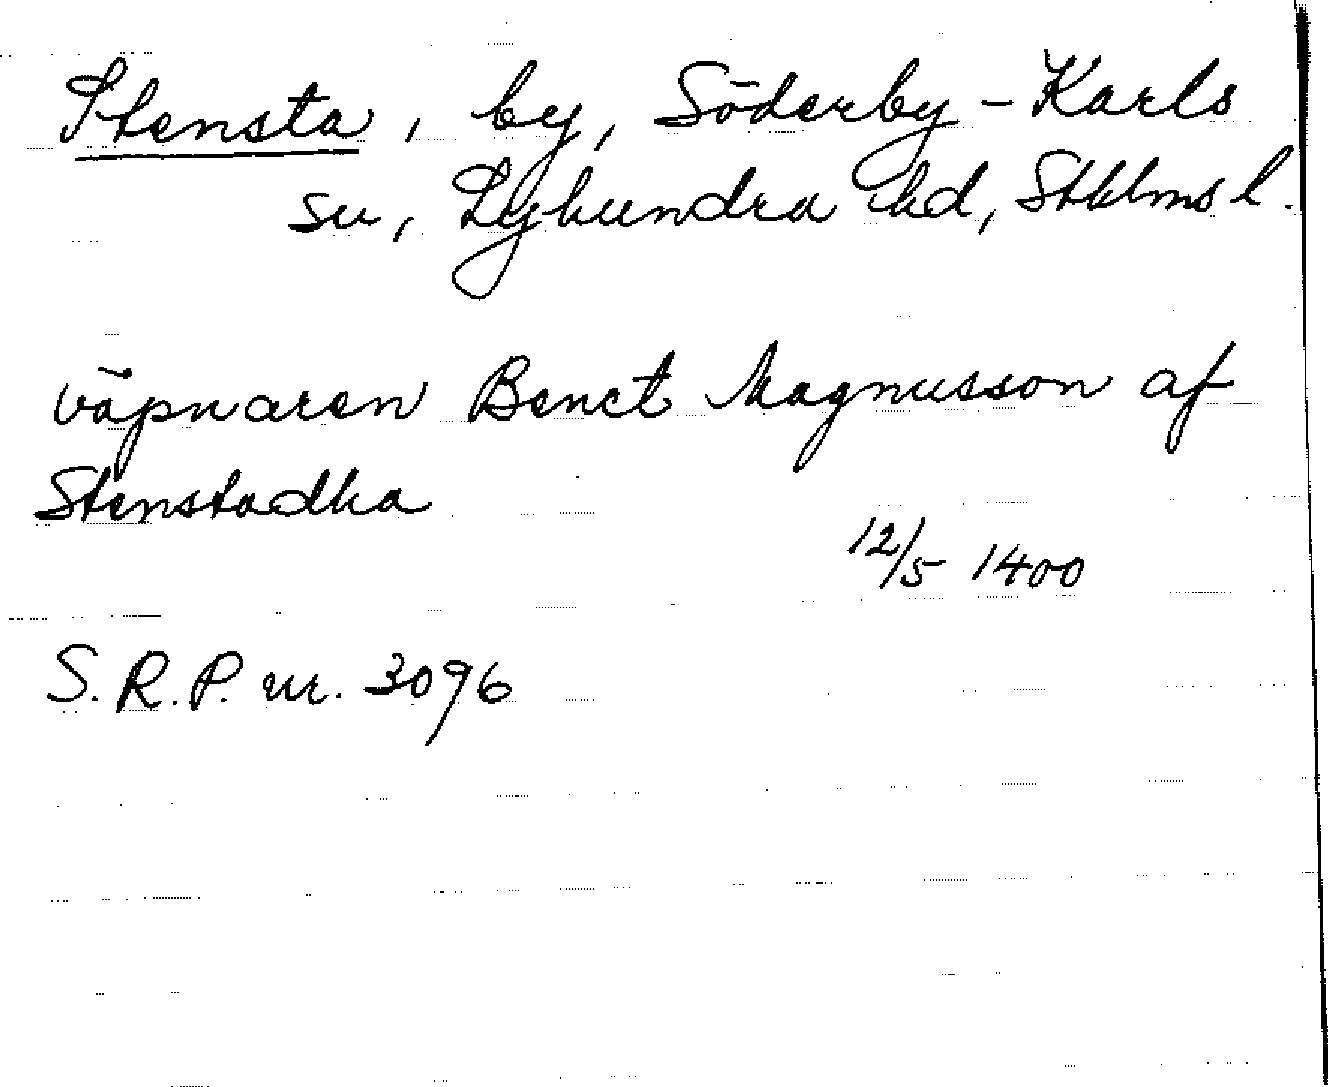 Stensta, by, Söderby-Karls
sn, Lyhundra hd, Sthlms l.
väpnaren Benct Magnusson af
Stenstadha
12/5 1400
S. R. P. nr. 3096